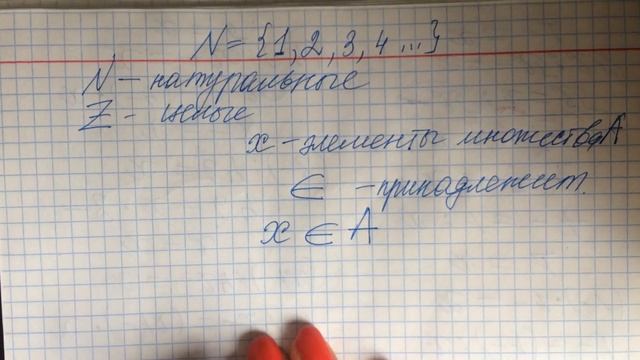 N = {1, 2, 3, 4 ...}
N - натуральные
Z - целые
x - элементы множества A
∈ - принадлежит.
x ∈ A